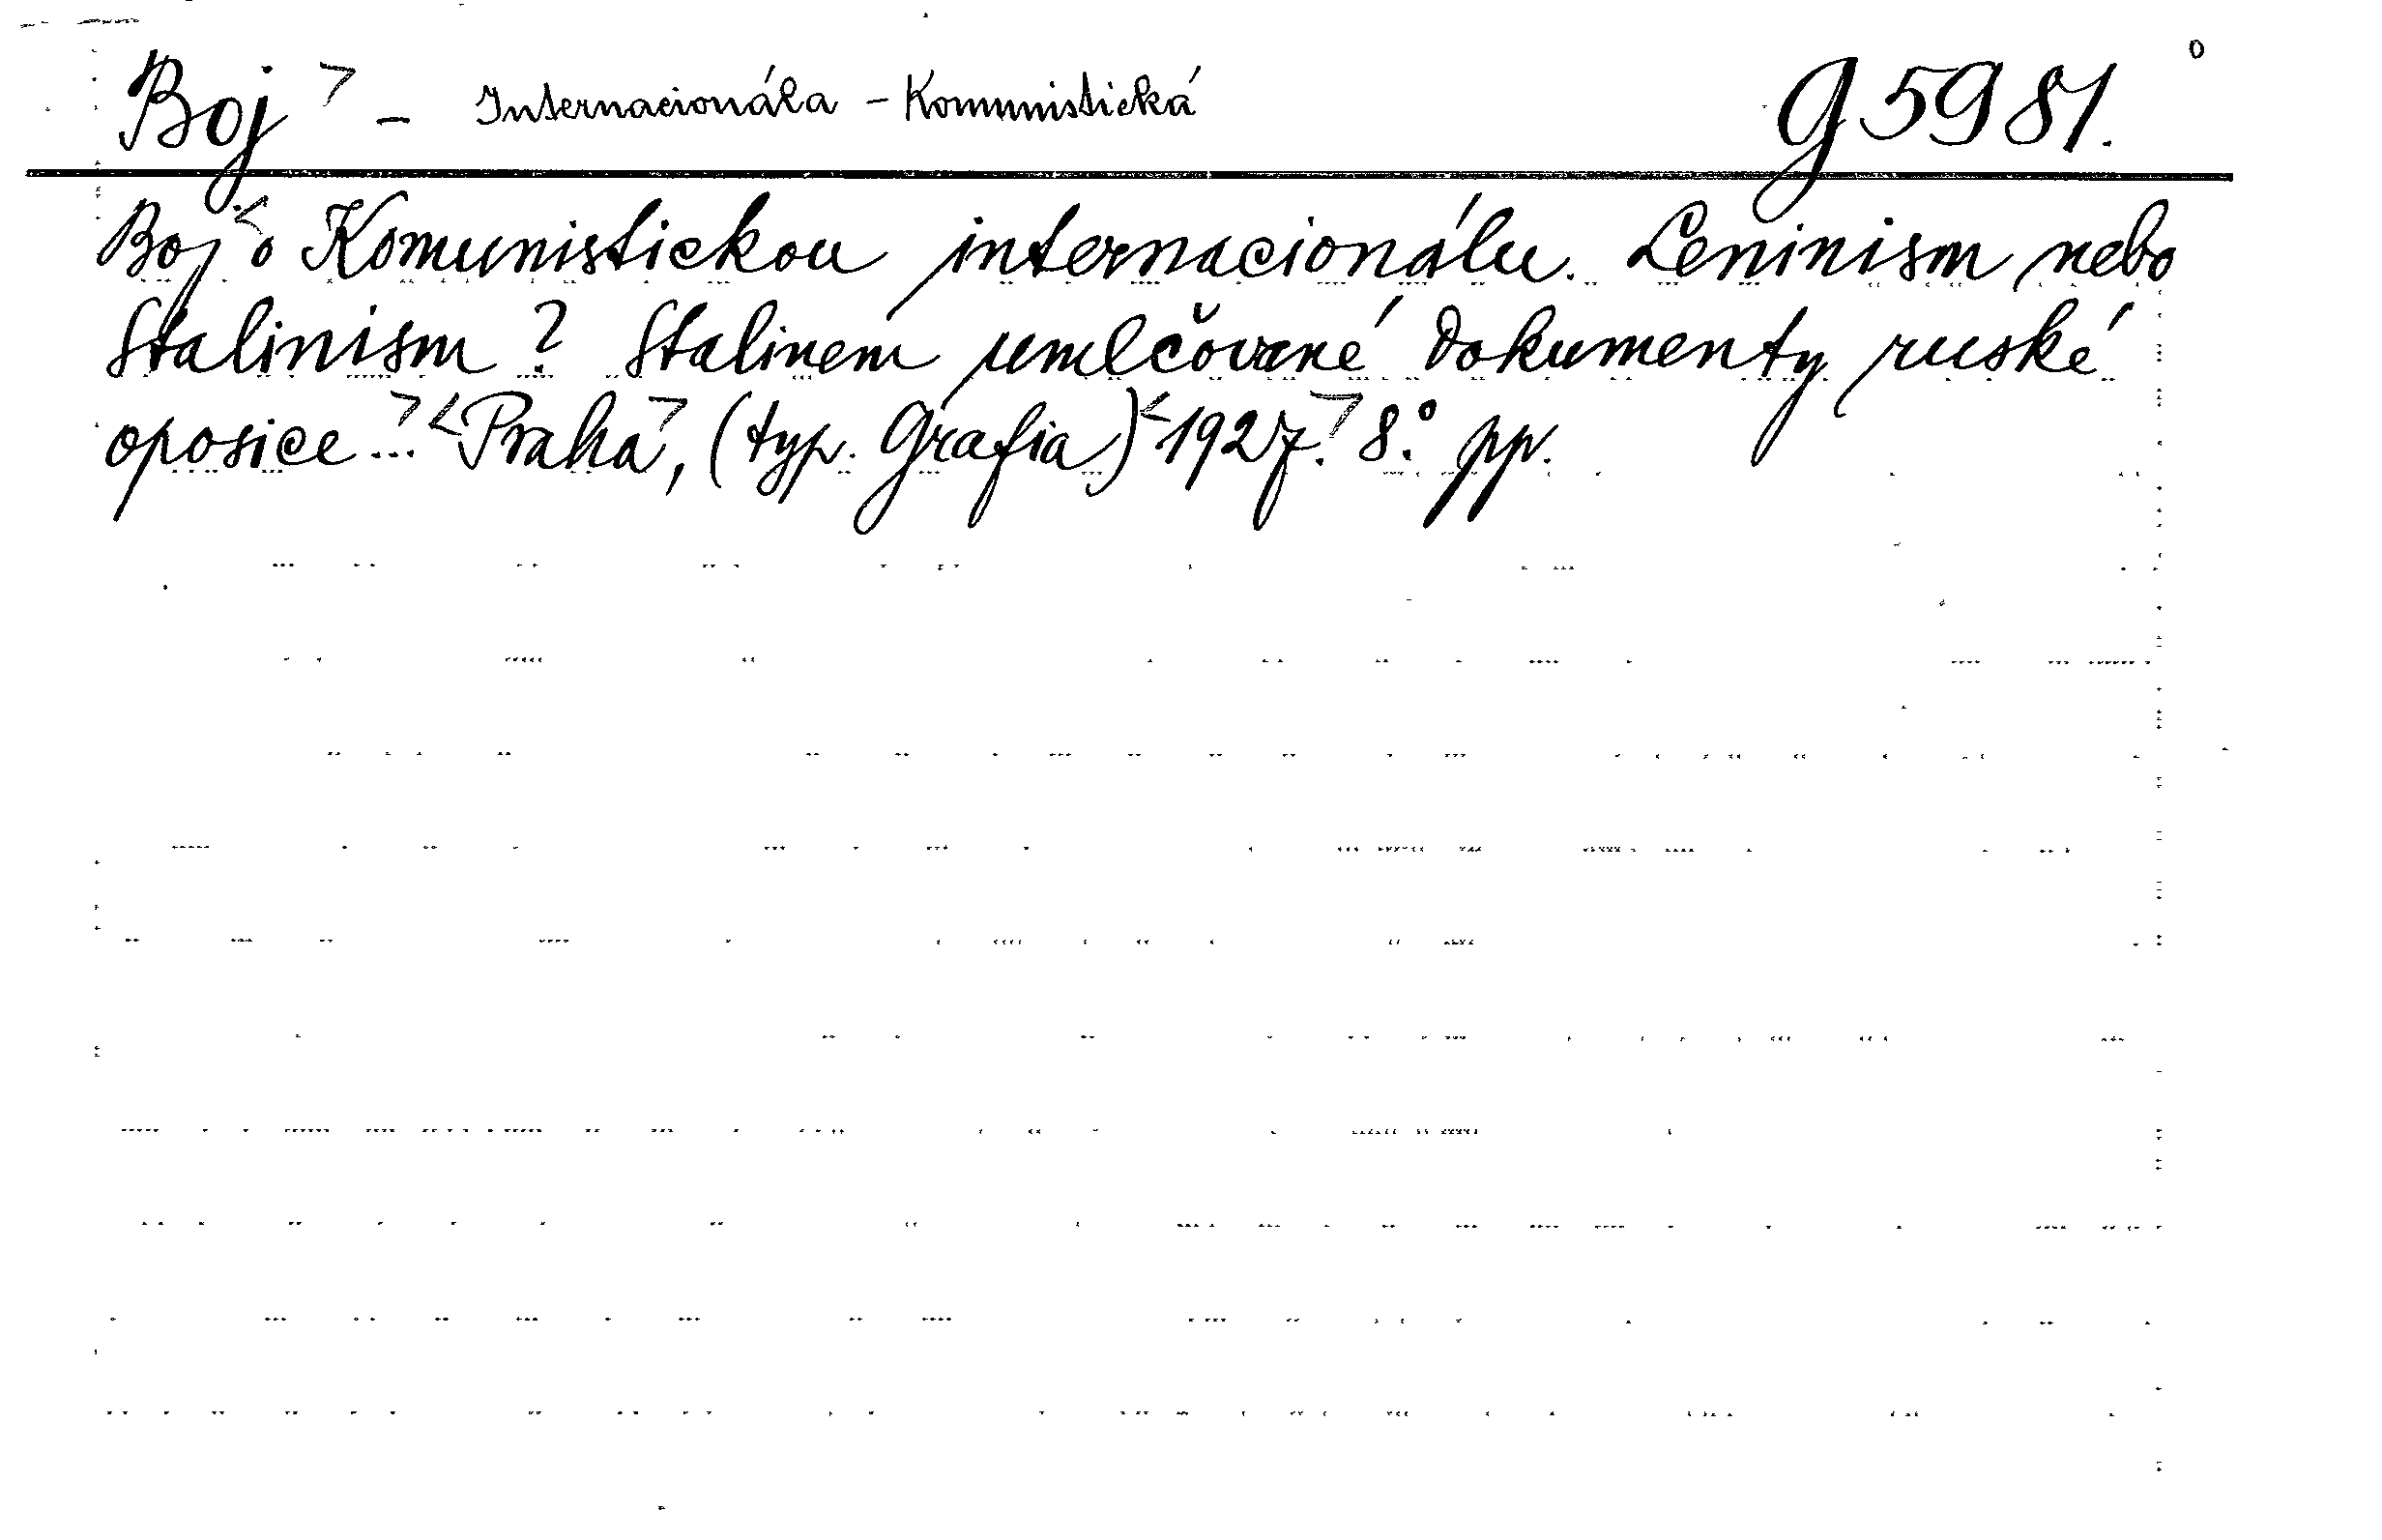 Boj > - Internacionála - Komunistická G 5981. o
Boj < o Komunistickou internacionálu. Leninism nebo
Stalinism? Stalinem umlčované dokumenty ruské
oposice...> <Praha>, (typ. Grafia) <1927.> 8.° pp.